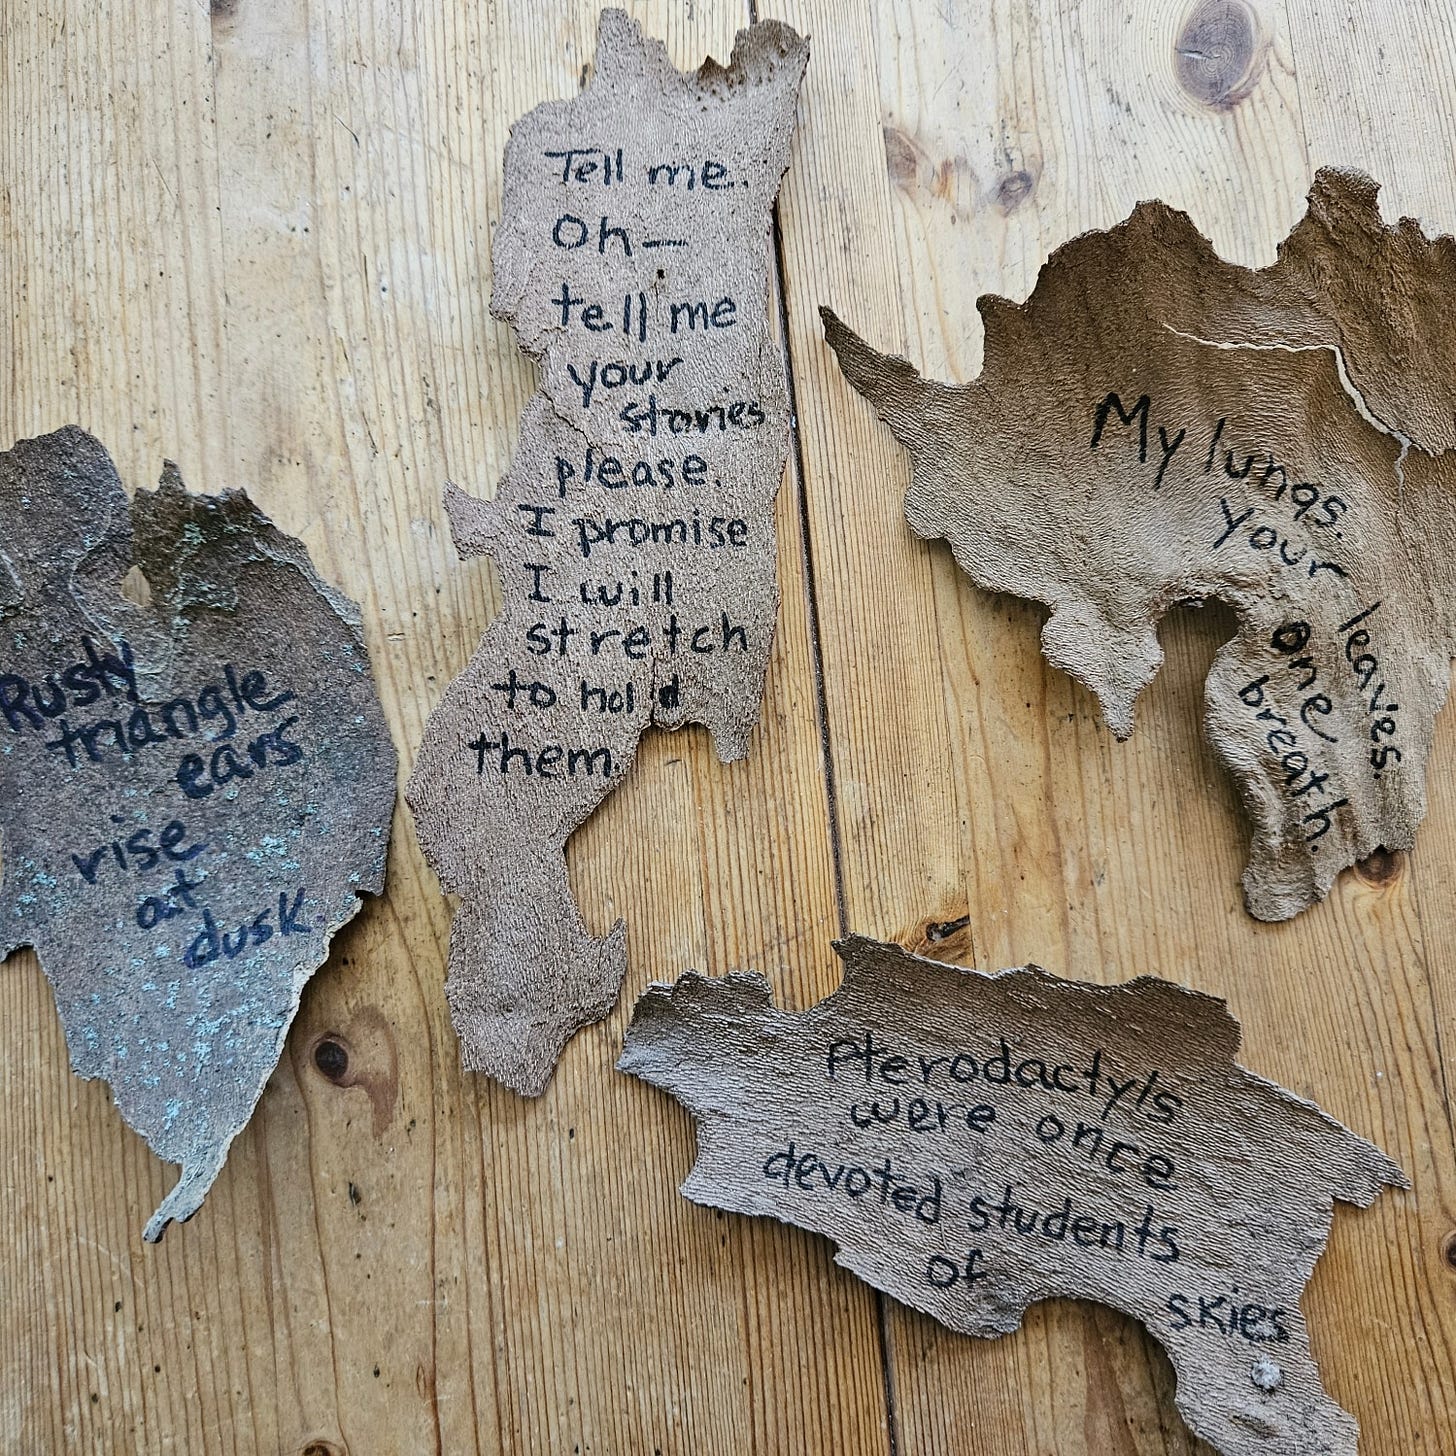 Tell me.
Oh—
tell me
your
stories
please.
I promise
I will
stretch
to hold
them.
My lungs.
Your leaves.
One
breath.
Rusty
triangle
ears
rise
at
dusk.
Pterodactyls
were once
devoted students
of
skies